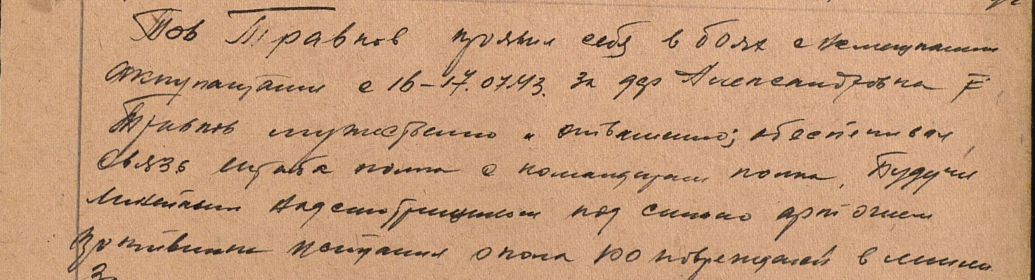 Тов Травков проявил себя в боях с немецкими
оккупантами с 16-17.07.43. за дер Александровка
Травков мужественно и отважно, обеспечивал
связь штаба полка с командирам полка. Будучи
линейным надсмотрщиком под сильно арт огнем
противника исправил около 100 повреждений в линии